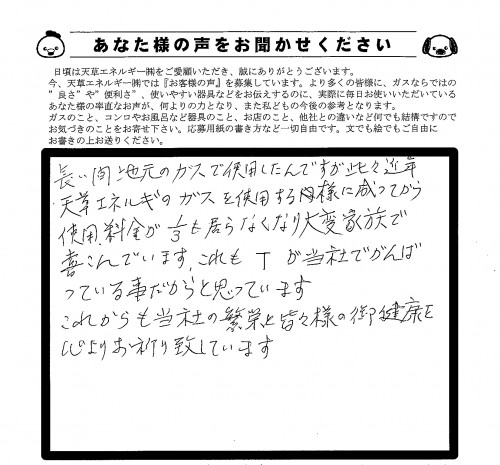 あなた様の声をお聞かせください
日頃は天草エネルギー㈱をご愛顧いただき、誠にありがとうございます。
今、天草エネルギー㈱では『お客様の声』を募集しています。より多くの皆様に、ガスならではの
"良さ"や"便利さ"、使いやすい器具などをお伝えするのに、実際に毎日お使いいただいている
あなた様の率直なお声が、何よりの力となり、また私どもの今後の参考となります。
ガスのこと、コンロやお風呂など器具のこと、お店のこと、他社との違いなど何でも結構ですので
お気づきのことをお寄せ下さい。応募用紙の書き方など一切自由です。文でも絵でもご自由に
お書きの上お送りください。
長い間地元のガスで使用したんですが此々近年
天草エネルギのガスを使用する様に成ってから
使用料金が1/3も居らなくなり大変家族で
喜こんでいます，これも T が当社でがんば
っている事だからと思っています
これからも当社の繁栄と皆々様の御健康を
心よりお祈り致しています